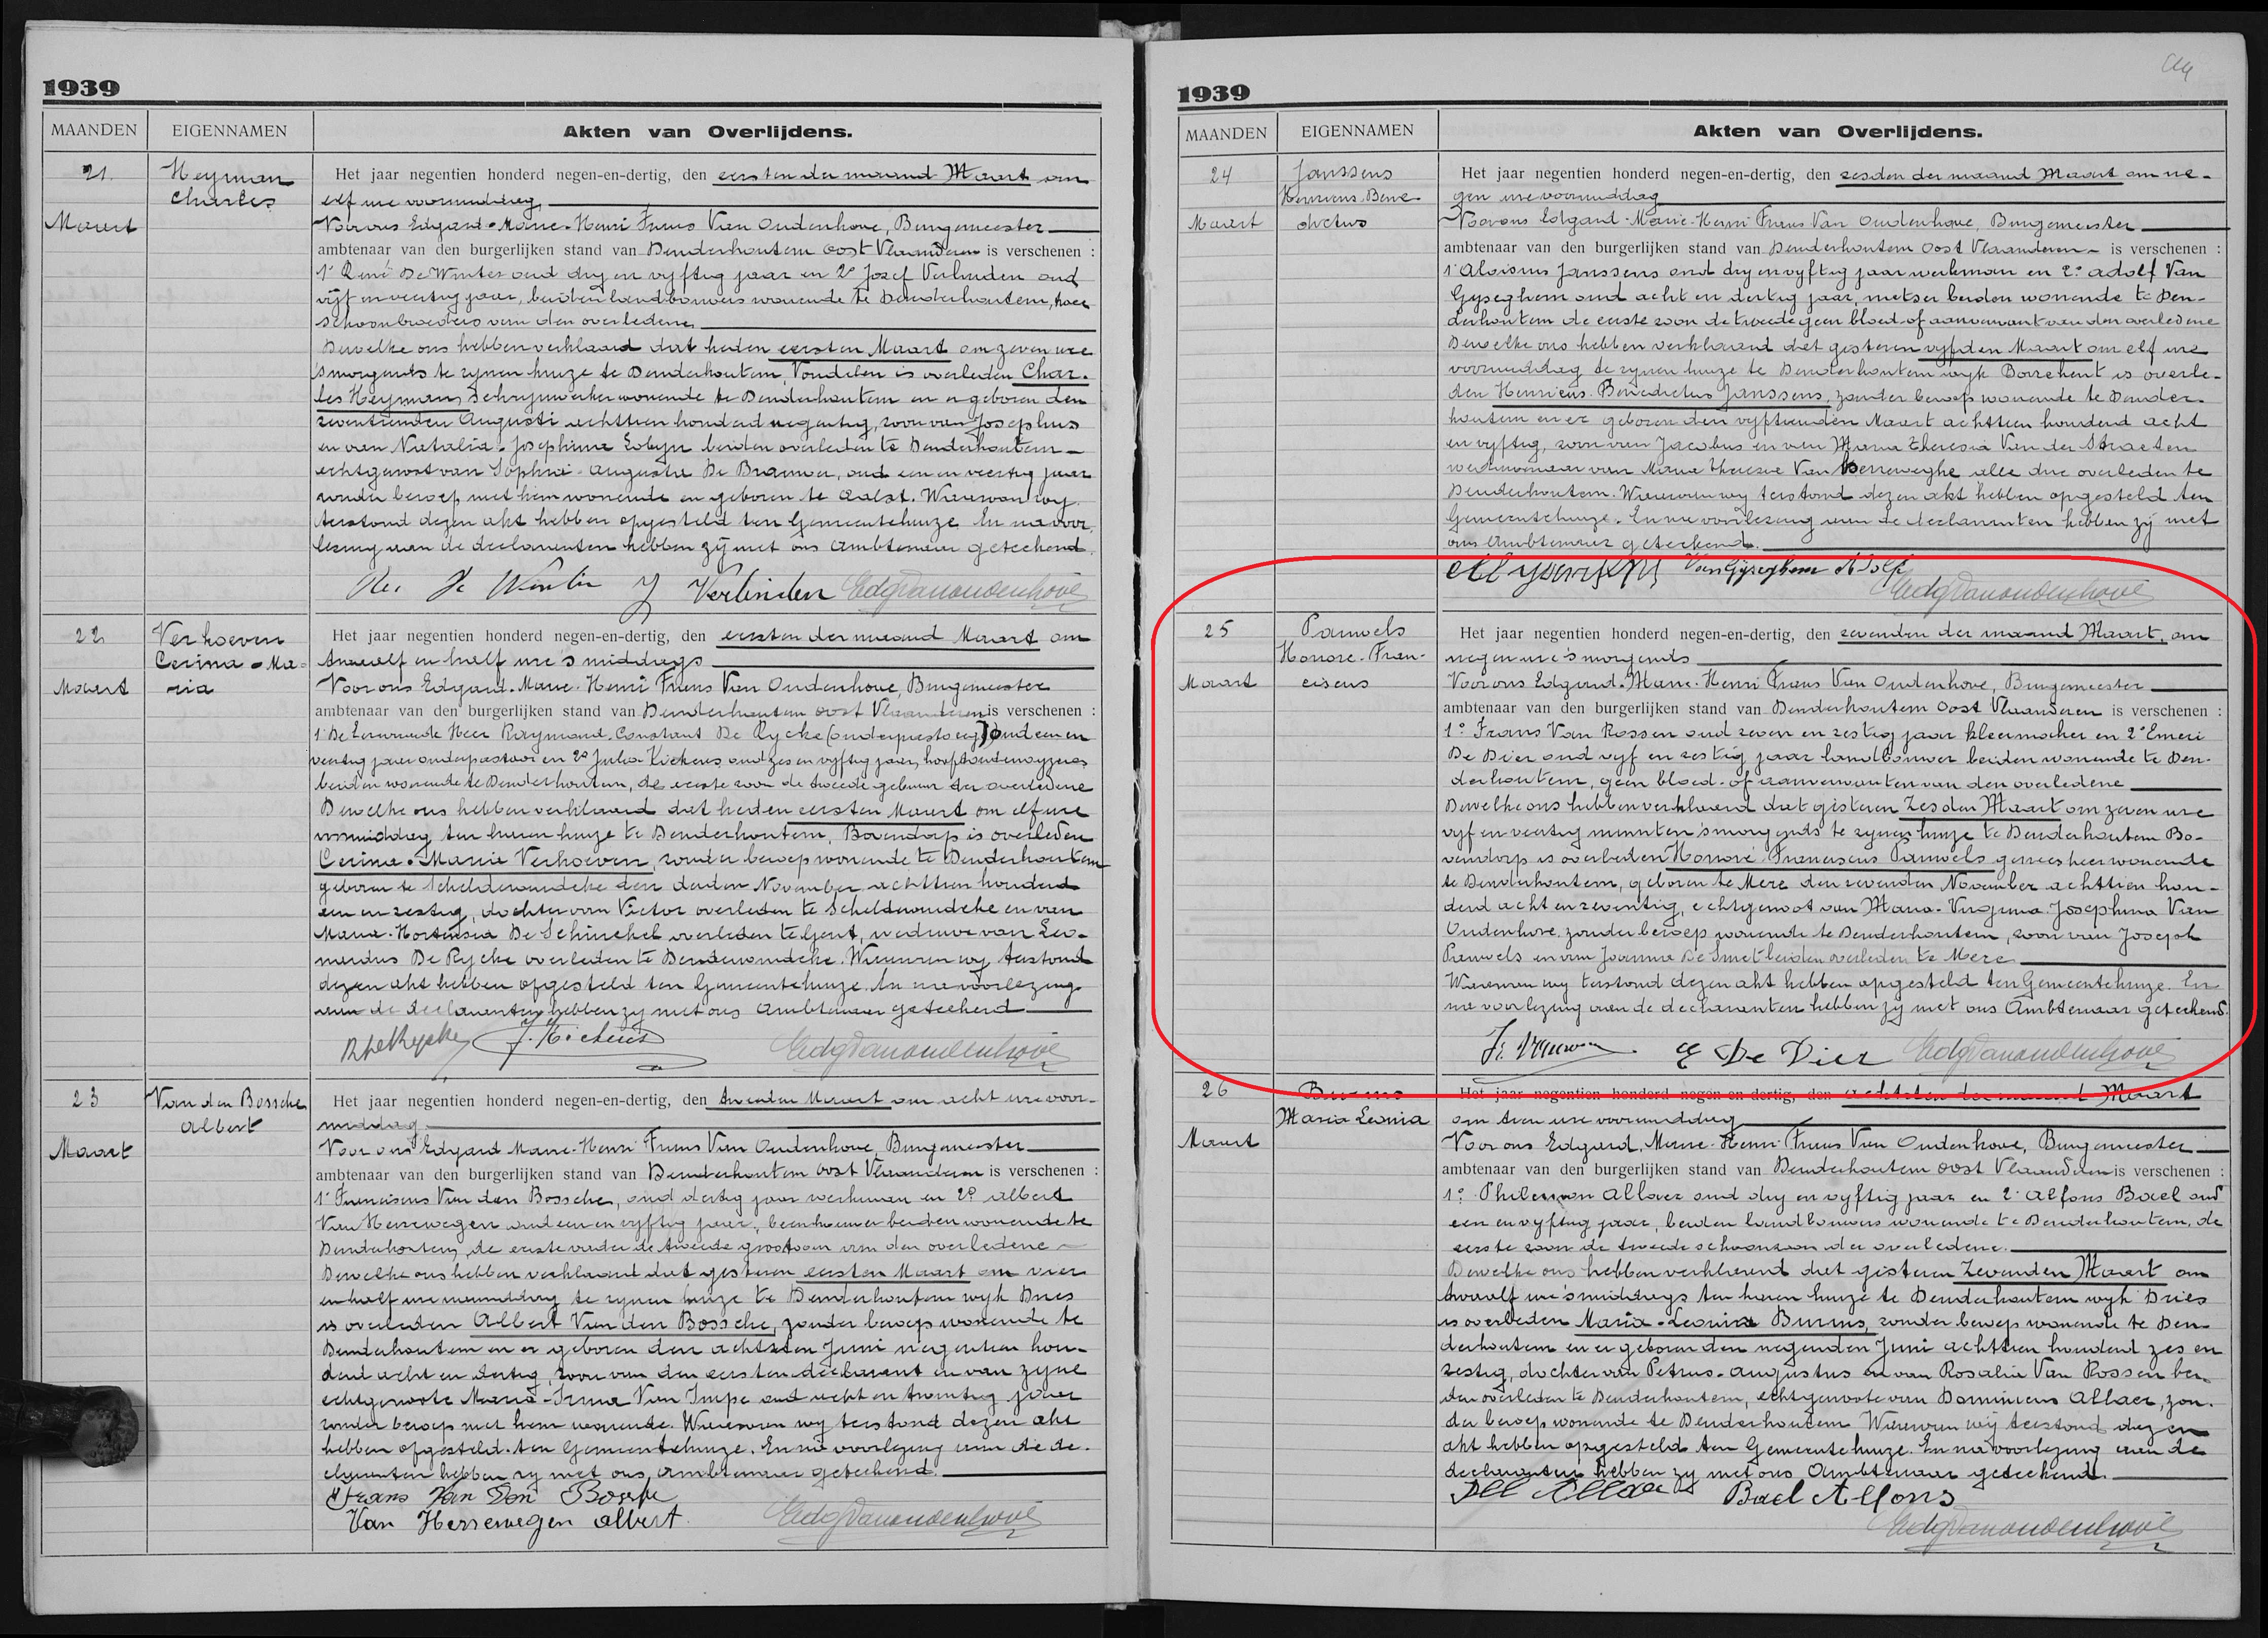 1939
MAANDEN EIGENNAMEN Akten van Overlijdens.
21. Heyman Charles
Maart
Het jaar negentien honderd negen-en-dertig, den eersten der maand Maart om
elf ure voormiddag
Voor ons Edgard-Marie-Henri Frans Van Oudenhove, Burgemeester
ambtenaar van den burgerlijken stand van Denderhoutem Oost Vlaanderen is verschenen :
1° René De Winter oud dry en vyftig jaar en 2° Jozef Verlinden oud
vijf en veertig jaar, beiden landbouwers wonende te Denderhoutem,
schoonbroeders van den overledene
Dewelke ons hebben verklaard dat heden eersten Maart om zeven ure
smorgends te zynen huize te Denderhoutem, Vondelen is overleden Char-
les Heyman, Schrynwerker wonende te Denderhoutem en er geboren den
zeventienden Augusti achttien honderd negentig, zoon van Josephus
en van Natalia-Josephina beiden overleden te Denderhoutem
echtgenoot van Sophia-Augusta De Brauwer, oud een en veertig jaar
zonder beroep met hem wonende en geboren te Aalst. Waarvan wy
terstond dezen akt hebben opgesteld ten Gemeentehuize. En na voor-
lezing aan de declaranten hebben zij met ons Ambtenaar geteekend.
De Winter J Verlinden Edg Vanoudenhove
22 Verhoeven
Cerina-Ma-
Maart ria
Het jaar negentien honderd negen-en-dertig, den eersten der maand Maart om
twaalf en half ure 's middags
Voor ons Edgard-Marie-Henri Frans Van Oudenhove, Burgemeester
ambtenaar van den burgerlijken stand van Denderhoutem Oost Vlaanderen is verschenen :
1° De Eerwaarde Heer Raymond-Constant De Rycke oud een en
veertig jaar onderpastoor en 2° Julia Kiekens oud zes en vyftig jaar,
beiden wonende te Denderhoutem, de eerste zoon de tweede gebuur der overledene
Dewelke ons hebben verklaard dat heden eersten Maart om elf ure
voormiddag ten haren huize te Denderhoutem, Bovendorp is overleden
Cerina-Maria Verhoeven, zonder beroep wonende te Denderhoutem
geboren te Scheldewindeke den derden November achttien honderd
een en zestig, dochter van Victor overleden te Scheldewindeke en van
Maria-Hortensia De Schinckel overleden te Gent, weduwe van Leo-
nardus De Rycke overleden te Denderwindeke. Waarvan wy terstond
dezen akt hebben opgesteld ten Gemeentehuize. En na voorlezing
aan de declaranten hebben zy met ons Ambtenaar geteekend
R De Rycke J. Kiekens Edg Vanoudenhove
23 Van den Bossche
Albert
Maart
Het jaar negentien honderd negen-en-dertig, den tweeden Maart om acht ure voor-
middag
Voor ons Edgard Marie-Henri Frans Van Oudenhove, Burgemeester
ambtenaar van den burgerlijken stand van Denderhoutem Oost Vlaanderen is verschenen :
1° Franciscus Van den Bossche, oud dertig jaar werkman en 2° Albert
Van Herrewegen oud een en vyftig jaar, beenhouwer beiden wonende te
Denderhoutem, de eerste vader de tweede grootoom van den overledene
Dewelke ons hebben verklaard dat gisteren eersten Maart om vier
en half ure namiddag te zynen huize te Denderhoutem wyk Dries
is overleden Albert Van den Bossche, zonder beroep wonende te
Denderhoutem en er geboren den achtsten Juni negentien hon-
derd acht en dertig, zoon van den eersten declarant en van zyne
echtgenoote Maria-Irma Van Impe oud acht en twintig jaar
zonder beroep met hem wonende. Waarvan wy terstond dezen akt
hebben opgesteld ten Gemeentehuize. En na voorlezing aan de de-
claranten hebben zy met ons Ambtenaar geteekend.
Frans Van Den Bossche
Van Herrewegen Albert. Edg Vanoudenhove
1939
MAANDEN EIGENNAMEN Akten van Overlijdens.
24 Janssens
Henricus Bene-
Maart dictus
Het jaar negentien honderd negen-en-dertig, den zesden der maand Maart om ne-
gen ure voormiddag
Voor ons Edgard-Marie-Henri Frans Van Oudenhove, Burgemeester
ambtenaar van den burgerlijken stand van Denderhoutem Oost Vlaanderen is verschenen :
1° Aloisius Janssens oud dry en vyftig jaar werkman en 2° Adolf Van
Gyseghem oud acht en dertig jaar, metser beiden wonende te Den-
derhoutem de eerste zoon de tweede geen bloed-of aanverwant van den overledene
Dewelke ons hebben verklaard dat gisteren vyfden Maart om elf ure
voormiddag te zynen huize te Denderhoutem wyk Borrekent is overle-
den Henricus-Benedictus Janssens, zonder beroep wonende te Dender-
houtem en er geboren den vyftienden Maart achttien honderd acht
en vyftig, zoon van Jacobus en van Maria Theresia Van der Straeten
weduwenaar van Maria Theresia Van Herreweghe alle drie overleden te
Denderhoutem. Waarvan wy terstond dezen akt hebben opgesteld ten
Gemeentehuize. En na voorlezing aan de declaranten hebben zij met
ons Ambtenaar geteekend.
Van Gyseghem Adolf
Edg Vanoudenhove
25 Pauwels
Honore-Fran-
Maart ciscus
Het jaar negentien honderd negen-en-dertig, den zevenden der maand Maart, om
negen ure 's morgends
Voor ons Edgard-Marie-Henri Frans Van Oudenhove, Burgemeester
ambtenaar van den burgerlijken stand van Denderhoutem Oost Vlaanderen is verschenen :
1° Frans Van Rossen oud zeven en zestig jaar kleermaker en 2° Emeri
De Dier oud vyf en zestig jaar landbouwer beiden wonende te Den-
derhoutem, geen bloed-of aanverwanten van den overledene
Dewelke ons hebben verklaard dat gisteren Zesden Maart om zeven ure
vyf en veertig minuten smorgends te zynen huize te Denderhoutem Bo-
vendorp is overleden Honoré-Franciscus Pauwels geneesheer wonende
te Denderhoutem, geboren te Mere den zevenden November achttien hon-
derd acht en zeventig, echtgenoot van Maria-Virginia-Josephina Van
Oudenhove zonder beroep wonende te Denderhoutem, zoon van Joseph
Pauwels en van Joanna De Smet beiden overleden te Mere
Waarvan wy terstond dezen akt hebben opgesteld ten Gemeentehuize. En
na voorlezing aan de declaranten hebben zy met ons Ambtenaar geteekend.
E De Dier Edg Vanoudenhove
26 Burms
Maria Leonia
Maart
Het jaar negentien honderd negen-en-dertig, den achtsten der maand Maart
om tien ure voormiddag
Voor ons Edgard-Marie-Henri Frans Van Oudenhove, Burgemeester
ambtenaar van den burgerlijken stand van Denderhoutem Oost Vlaanderen is verschenen :
1° Philemon Allaer oud dry en vyftig jaar en 2° Alfons Bael oud
een en vyftig jaar, beiden landbouwers wonende te Denderhoutem, de
eerste zoon de tweede schoonzoon der overledene.
Dewelke ons hebben verklaard dat gisteren Zevenden Maart om
twaalf ure 'smiddags ten haren huize te Denderhoutem wyk Dries
is overleden Maria-Leonia Burms, zonder beroep wonende te Den-
derhoutem en er geboren den negenden Juni achttien honderd zes en
zestig, dochter van Petrus-Augustus en van Rosalia Van Rossen bei-
den overleden te Denderhoutem, echtgenoote van Dominicus Allaer, zon-
der beroep wonende te Denderhoutem Waarvan wij terstond dezen
akt hebben opgesteld ten Gemeentehuize. En na voorlezing aan de
declaranten hebben zy met ons Ambtenaar geteekend.
Allaer Bael Alfons
Edg Vanoudenhove